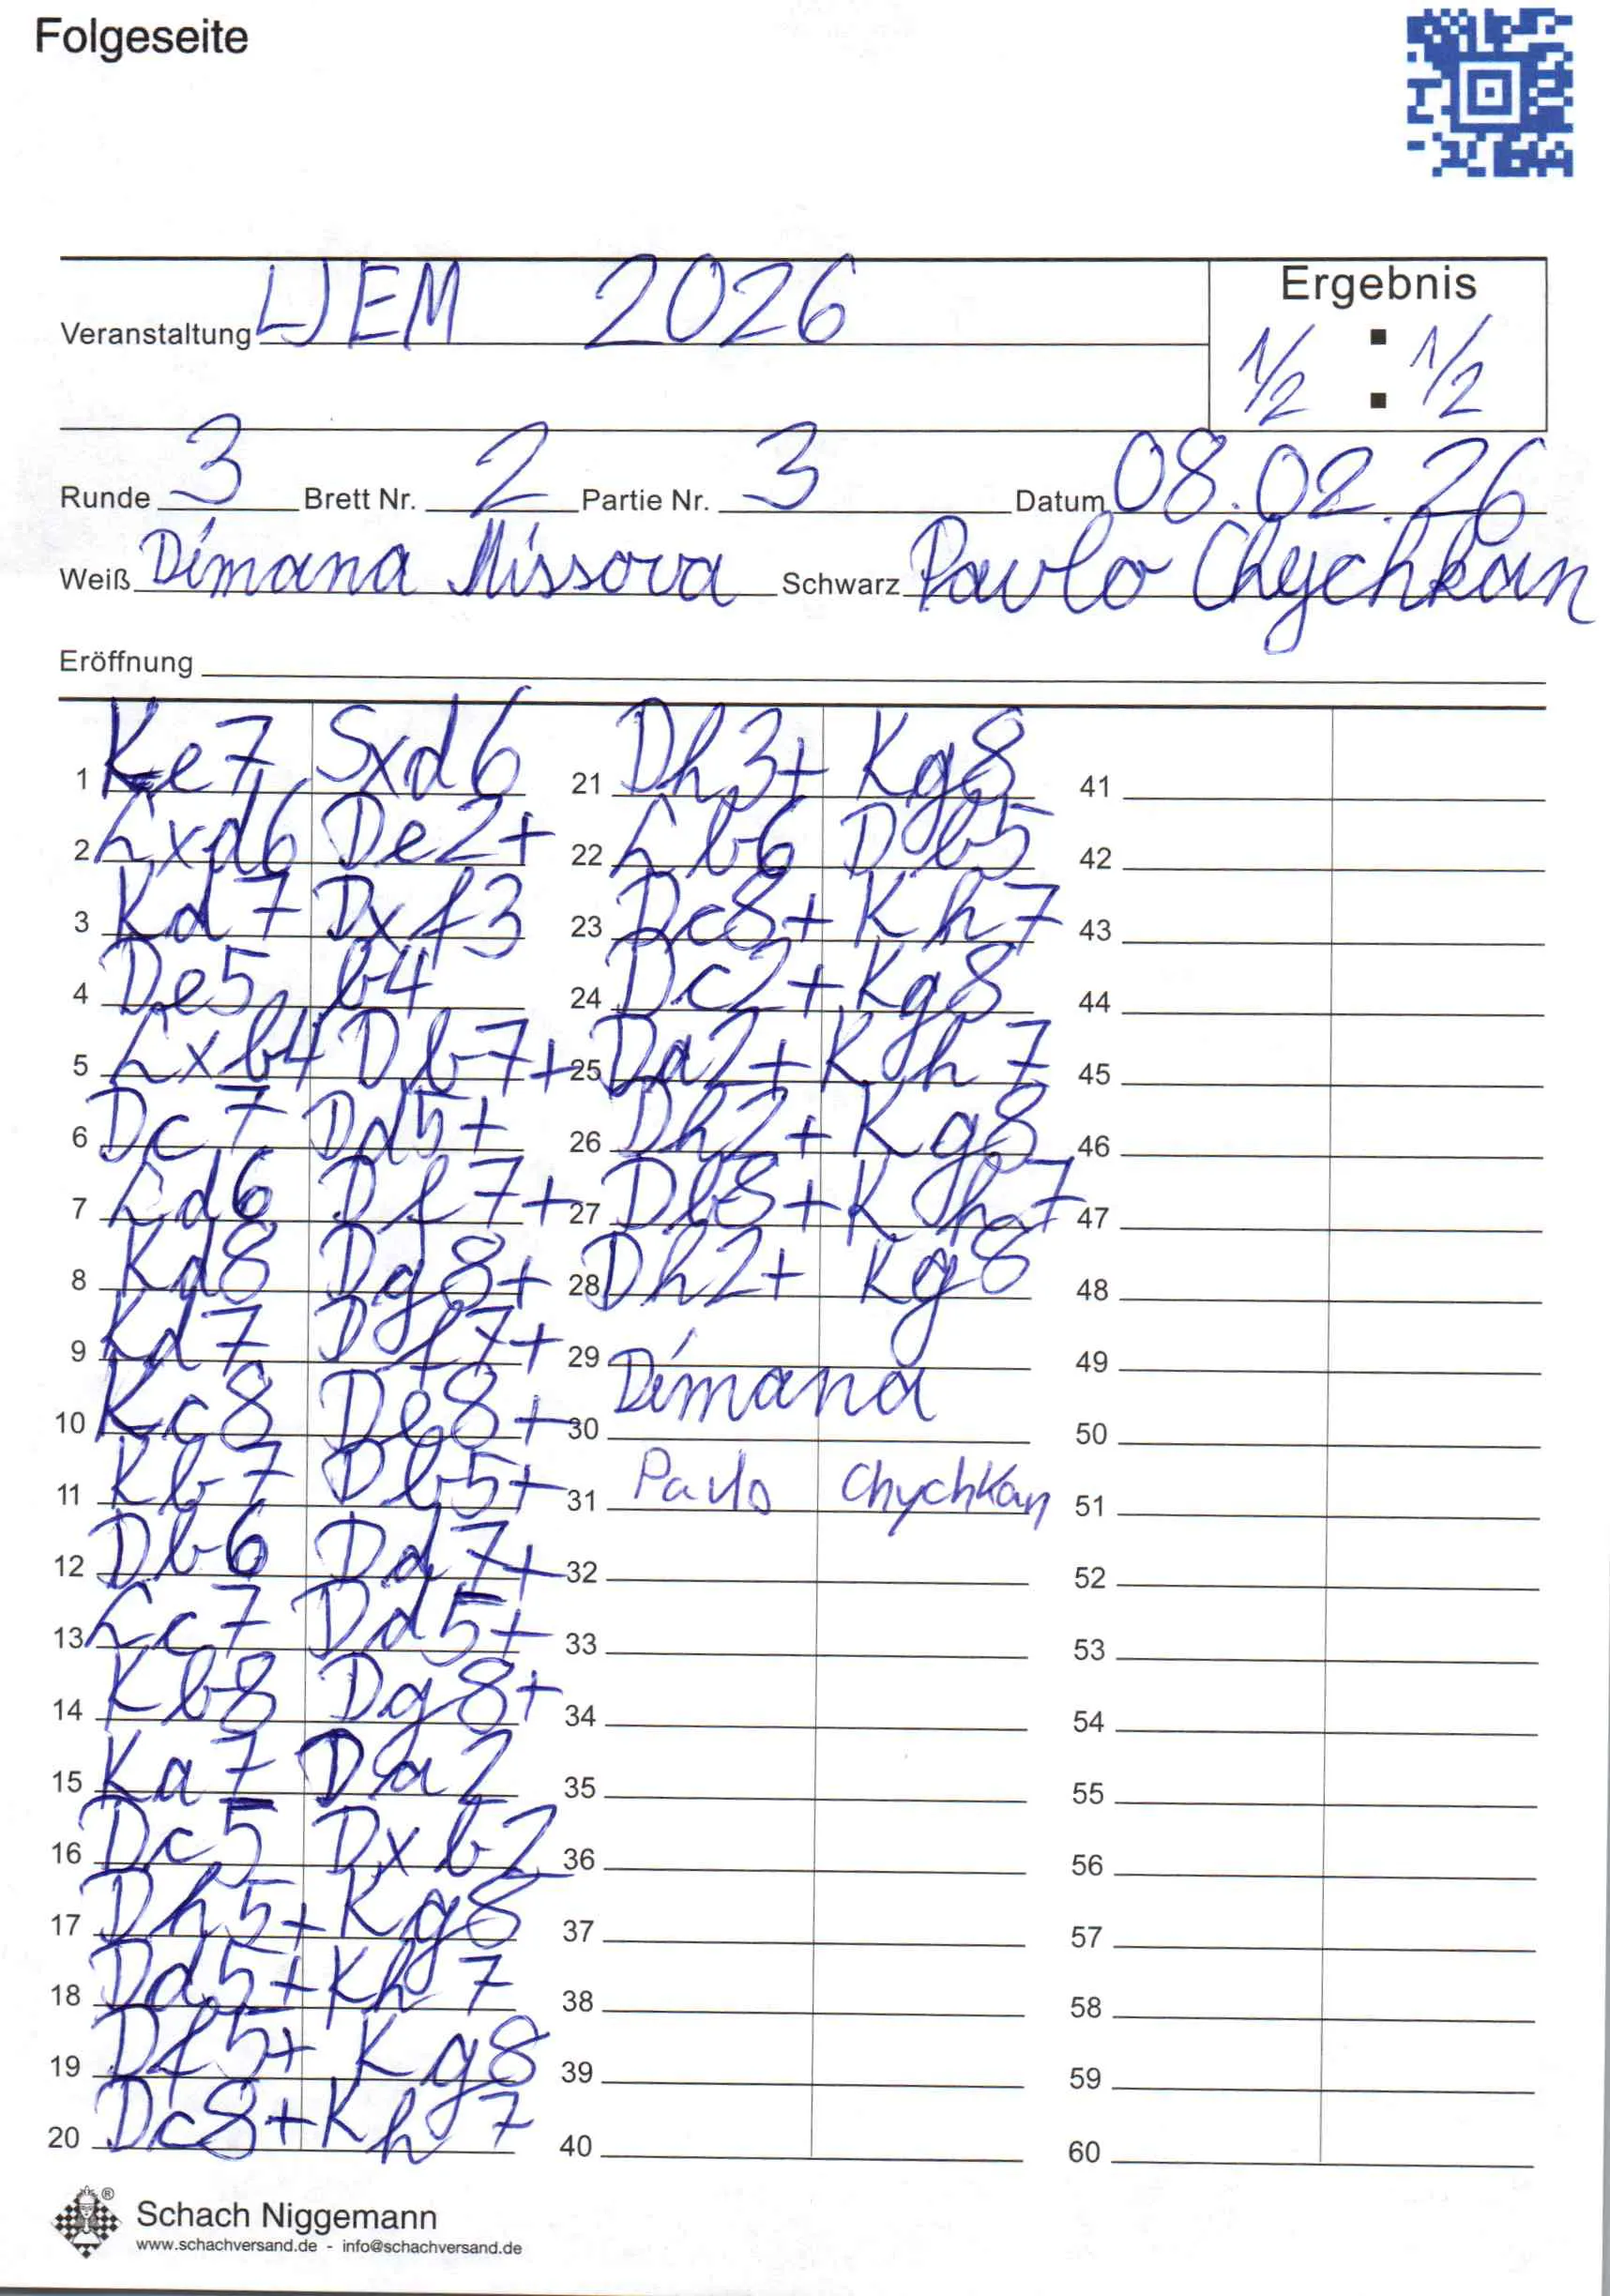 Folgeseite
Veranstaltung LJEM 2026
Ergebnis
1/2 : 1/2
Runde 3 Brett Nr. 2 Partie Nr. 3 Datum 08.02.26
Weiß Dimana Missova Schwarz Pavlo Chychkan
Eröffnung
1 Ke7 Sxd6
2 Lxd6 De2+
3 Kd7 Dxf3
4 De5 b4
5 Lxb4 Db7+
6 Dc7 Dd5+
7 Ld6 Df7+
8 Kd8 Dg8+
9 Kd7 Df7+
10 Kc8 De8+
11 Kb7 Db5+
12 Db6 Dd7+
13 Lc7 Dd5+
14 Kb8 Dg8+
15 Ka7 Da2
16 Dc5 Dxb2
17 Dh5+ Kg8
18 Dd5+ Kh7
19 Df5+ Kg8
20 Dc8+ Kh7
21 Dh3+ Kg8
22 Lb6 Db5
23 Dc8+ Kh7
24 Dc2+ Kg8
25 Da2+ Kh7
26 Dh2+ Kg8
27 Db8+ Kh7
28 Dh2+ Kg8
29
Dimana
30
31 Pavlo Chychkan
32
33
34
35
36
37
38
39
40
41
42
43
44
45
46
47
48
49
50
51
52
53
54
55
56
57
58
59
60
®
Schach Niggemann
www.schachversand.de - info@schachversand.de